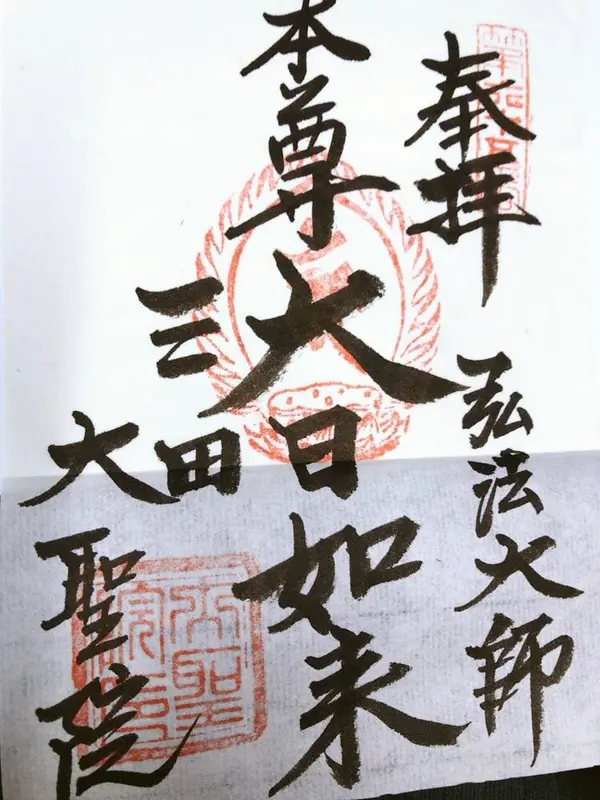 奉拝
弘法大師
本尊
大日如来
三田
大聖院
大聖院印